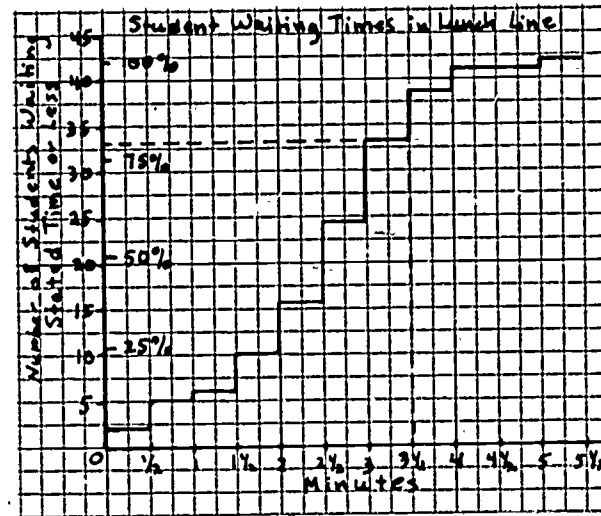 Student Waiting Times in Lunch Line
Number of Students Waiting
Stated Time or Less
45
40
35
30
25
20
15
10
5
0
00%
75%
50%
25%
1/2
1
1 1/2
2
2 1/2
3
3 1/2
4
4 1/2
5
5 1/2
Minutes